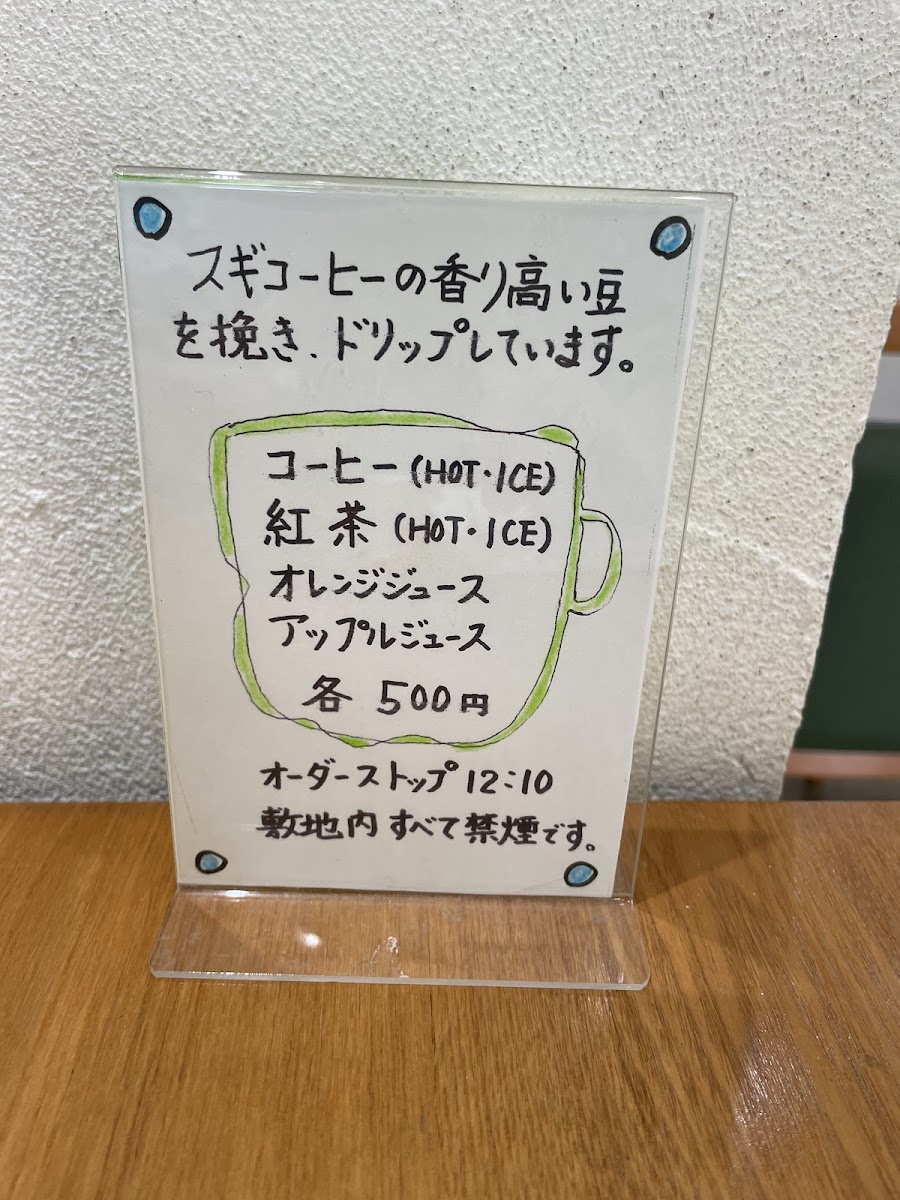 スギコーヒーの香り高い豆
を挽き、ドリップしています。
コーヒー(HOT・ICE)
紅茶(HOT・ICE)
オレンジジュース
アップルジュース
各 500円
オーダーストップ12:10
敷地内すべて禁煙です。